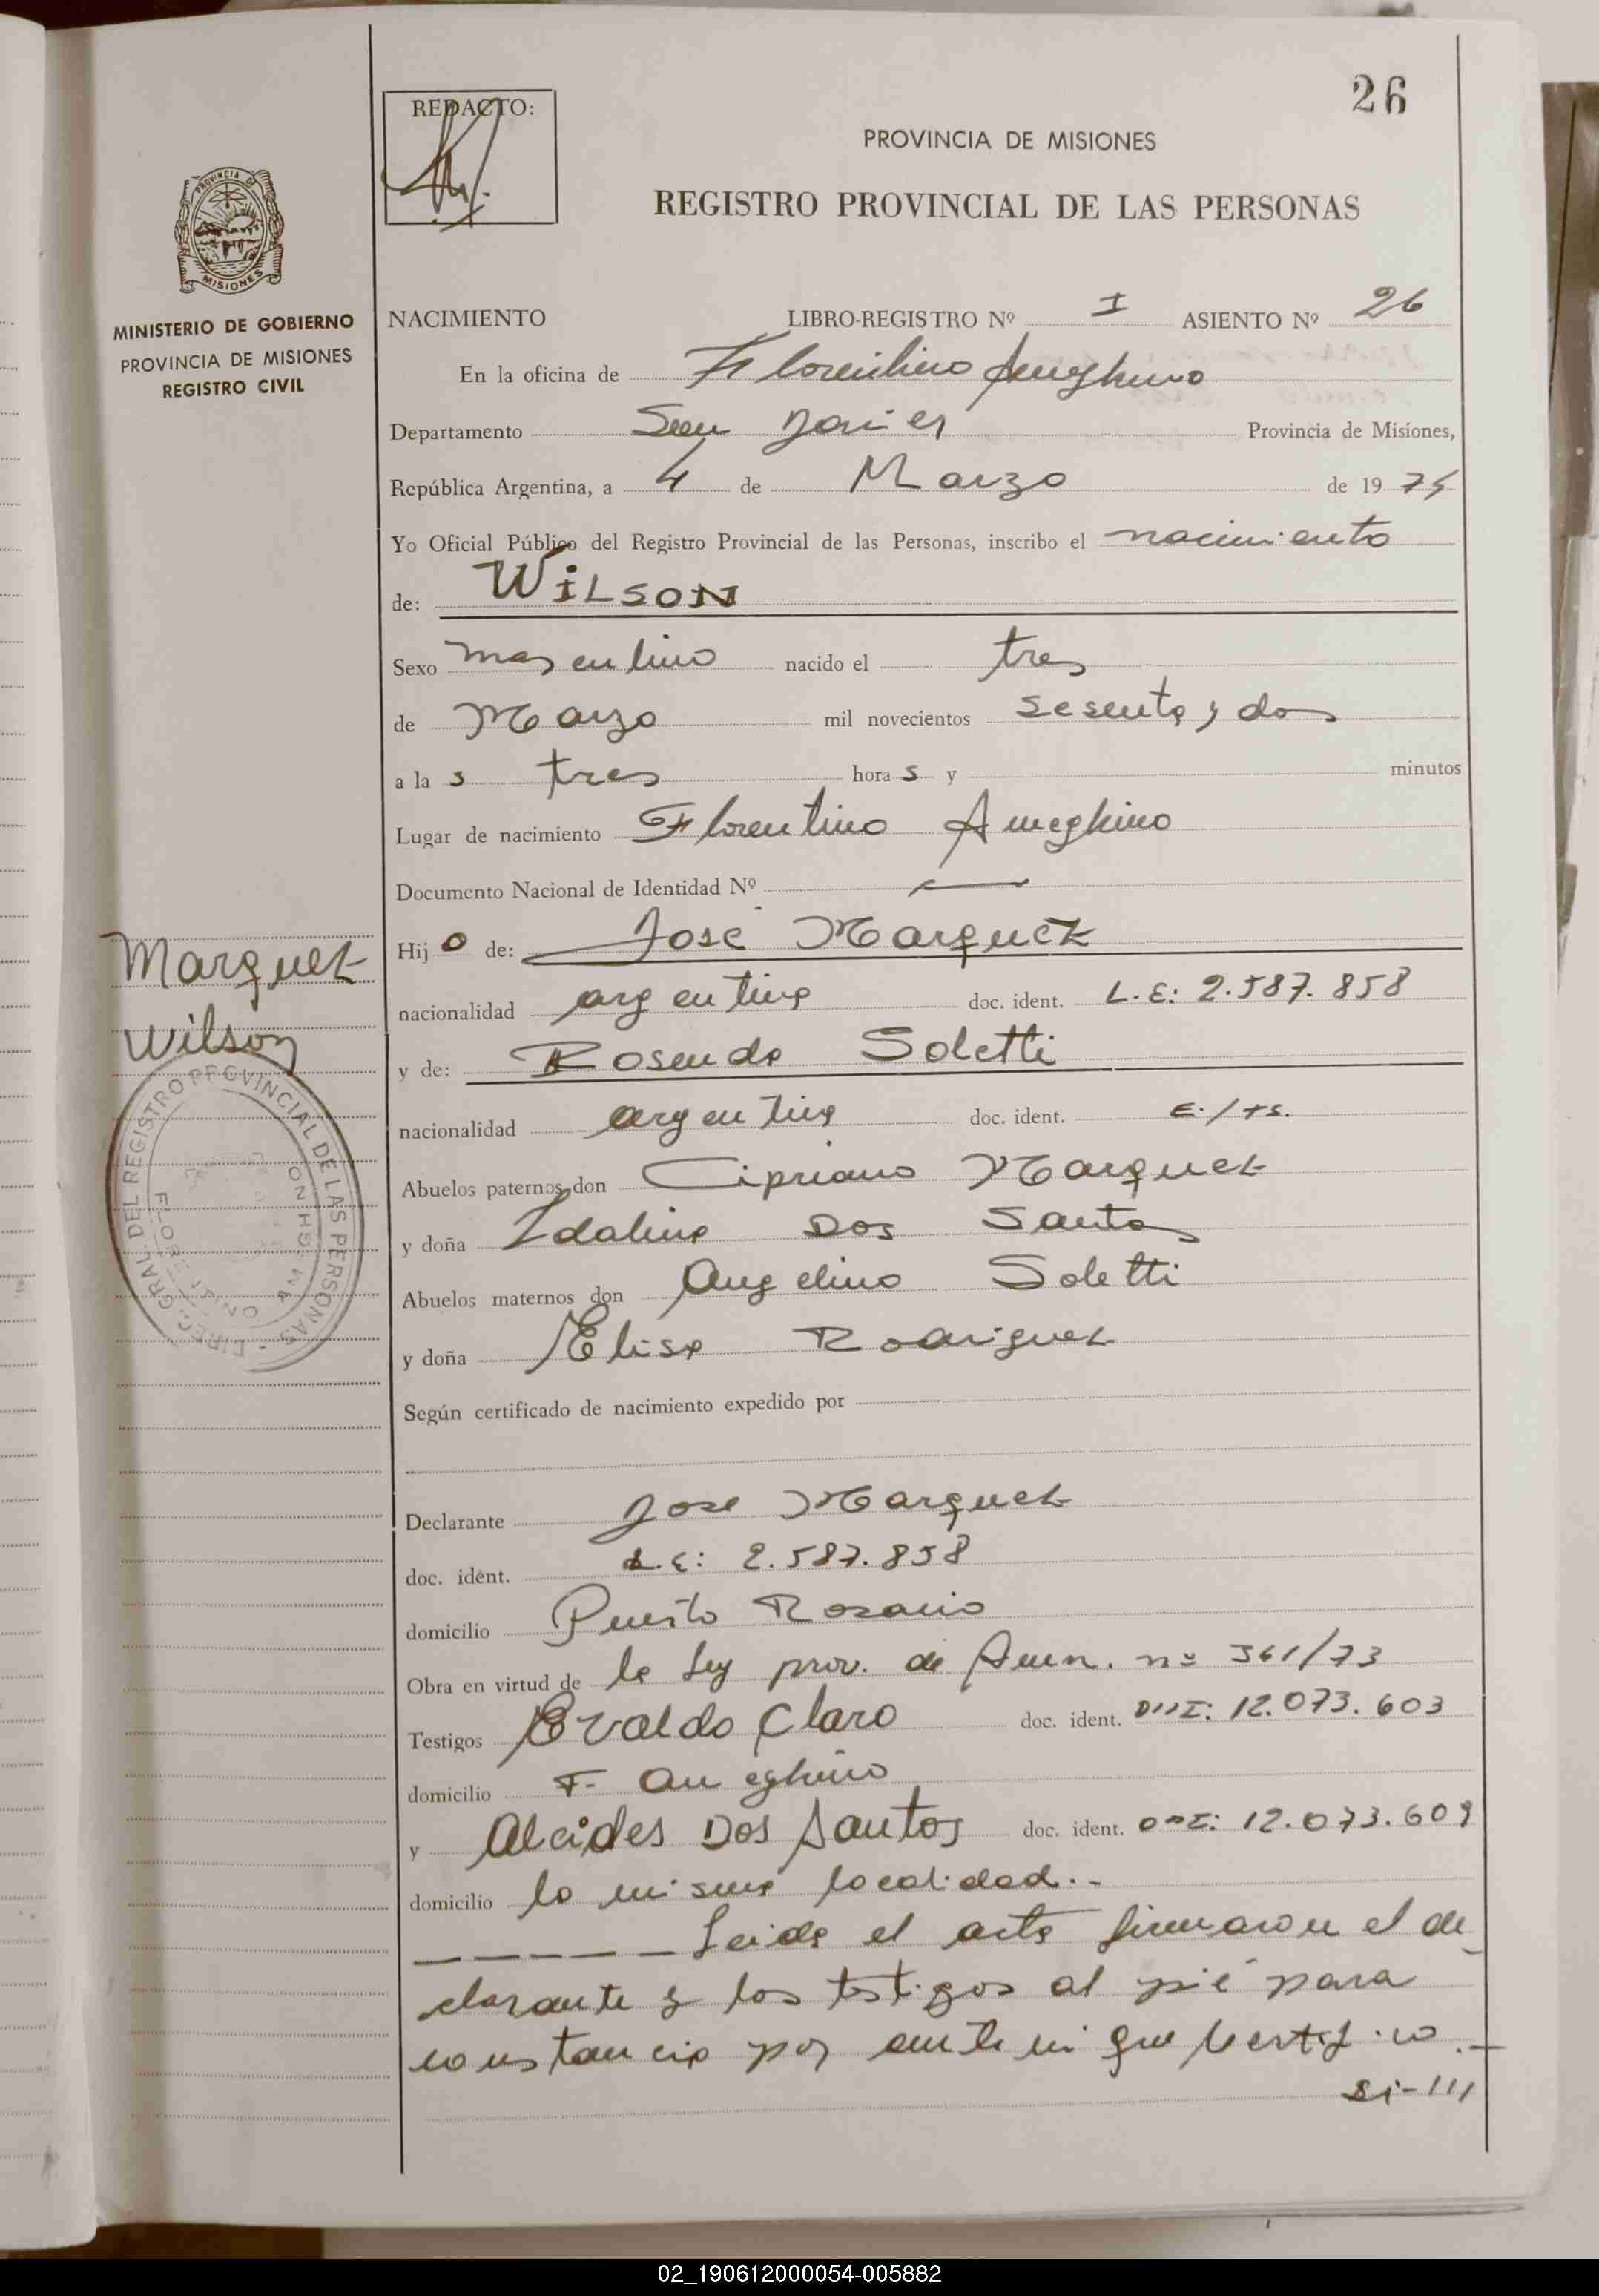 26
REDACTO:
PROVINCIA DE MISIONES
REGISTRO PROVINCIAL DE LAS PERSONAS
PROVINCIA DE
MISIONES
MINISTERIO DE GOBIERNO
PROVINCIA DE MISIONES
REGISTRO CIVIL
NACIMIENTO LIBRO-REGISTRO Nº I ASIENTO Nº 26
En la oficina de Florentino Ameghino
Departamento San Javier Provincia de Misiones,
República Argentina, a 4 de Marzo de 19 74
Yo Oficial Público del Registro Provincial de las Personas, inscribo el nacimiento
de: WILSON
Sexo masculino nacido el tres
de Marzo mil novecientos sesenta y dos
a la s tres hora s y minutos
Lugar de nacimiento Florentino Ameghino
Documento Nacional de Identidad Nº
Hij o de: José Marquez
nacionalidad argentina doc. ident. L.E: 2.587.858
y de: Rosenda Soletti
nacionalidad argentina doc. ident.
Abuelos paternos don Cipriano Marquez
y doña Idalina Dos Santos
Abuelos maternos don Angelino Soletti
y doña Elisa Rodriguez
Según certificado de nacimiento expedido por
Declarante Jose Marquez
doc. ident. L.E: 2.587.858
domicilio Puerto Rosario
Obra en virtud de la Ley prov. de Amn. nº 361/73
Testigos Evaldo Claro doc. ident. DNI: 12.073.603
domicilio F. Ameghino
y Alcides Dos Santos doc. ident. DNI: 12.073.609
domicilio la misma localidad.-
Leida el acta firmaron el de
clarante y los testigos al pié para
constancia por ante mi que certifico.-
Marquez
Wilson
DIREC. GRAL. DEL REGISTRO PROVINCIAL DE LAS PERSONAS
02_190612000054-005882